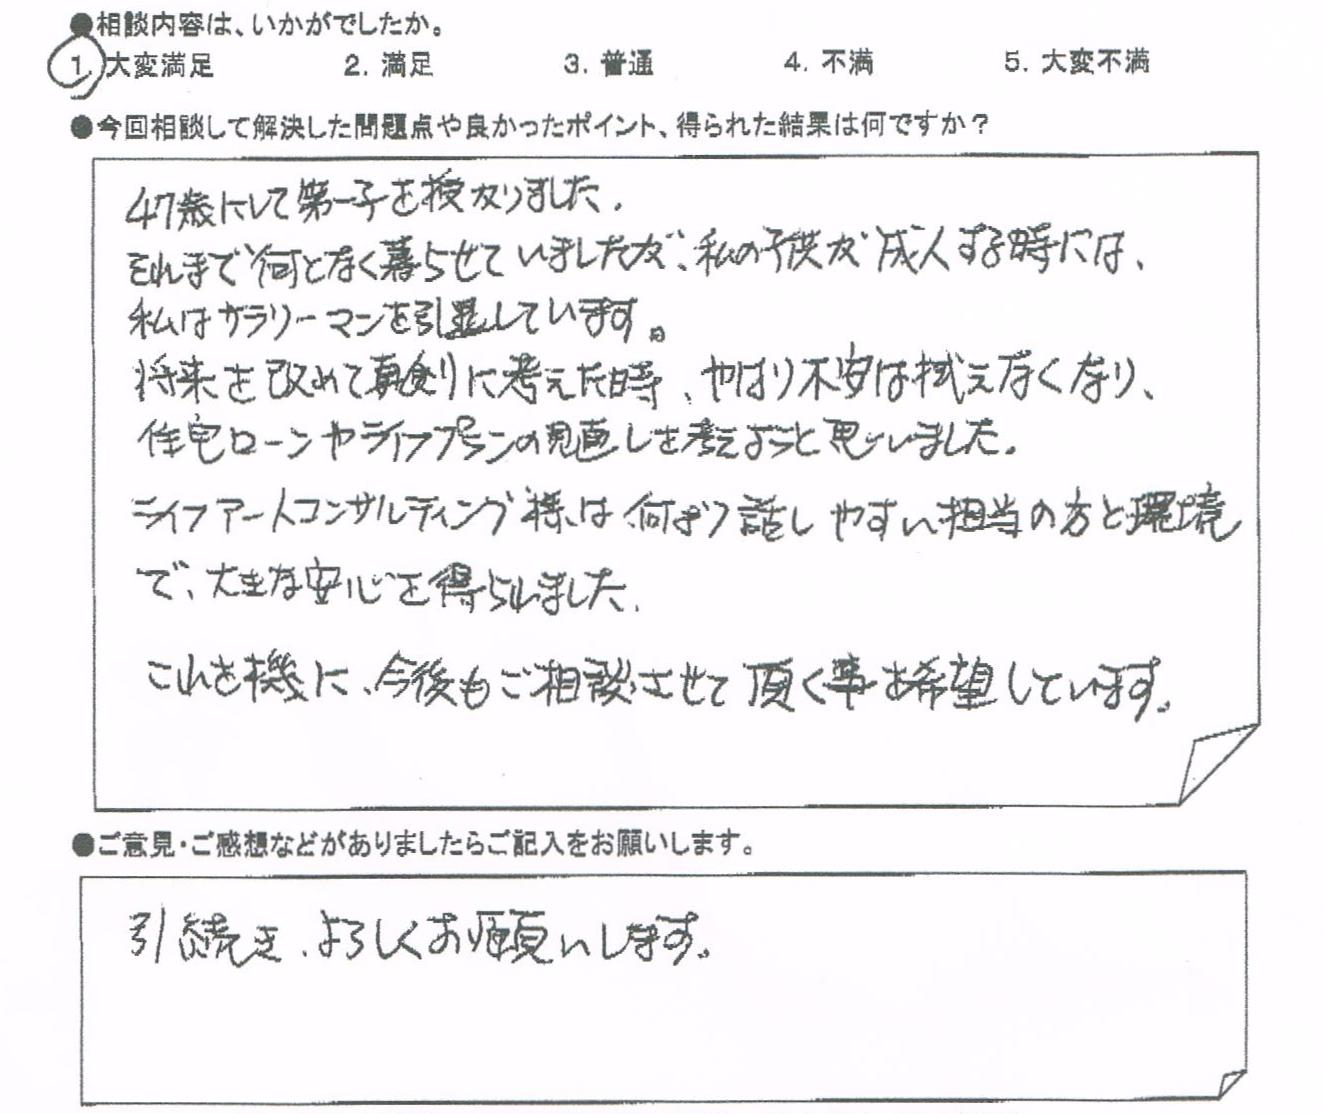 ●相談内容は、いかがでしたか。
1. 大変満足 2. 満足 3. 普通 4. 不満 5. 大変不満
●今回相談して解決した問題点や良かったポイント、得られた結果は何ですか？
47歳にして第一子を授かりました。
それまで何となく暮らせていましたが、私の子供が成人する時には、
私はサラリーマンを引退しています。
将来を改めて真剣に考えた時、やはり不安は拭えなくなり、
住宅ローンやライフプランの見直しを考えようと思いました。
ライフアートコンサルティング様は何より話しやすい担当の方と環境
で、大きな安心を得られました。
これを機に、今後もご相談させて頂く事を希望しています。
●ご意見・ご感想などがありましたらご記入をお願いします。
引続き、よろしくお願いします。